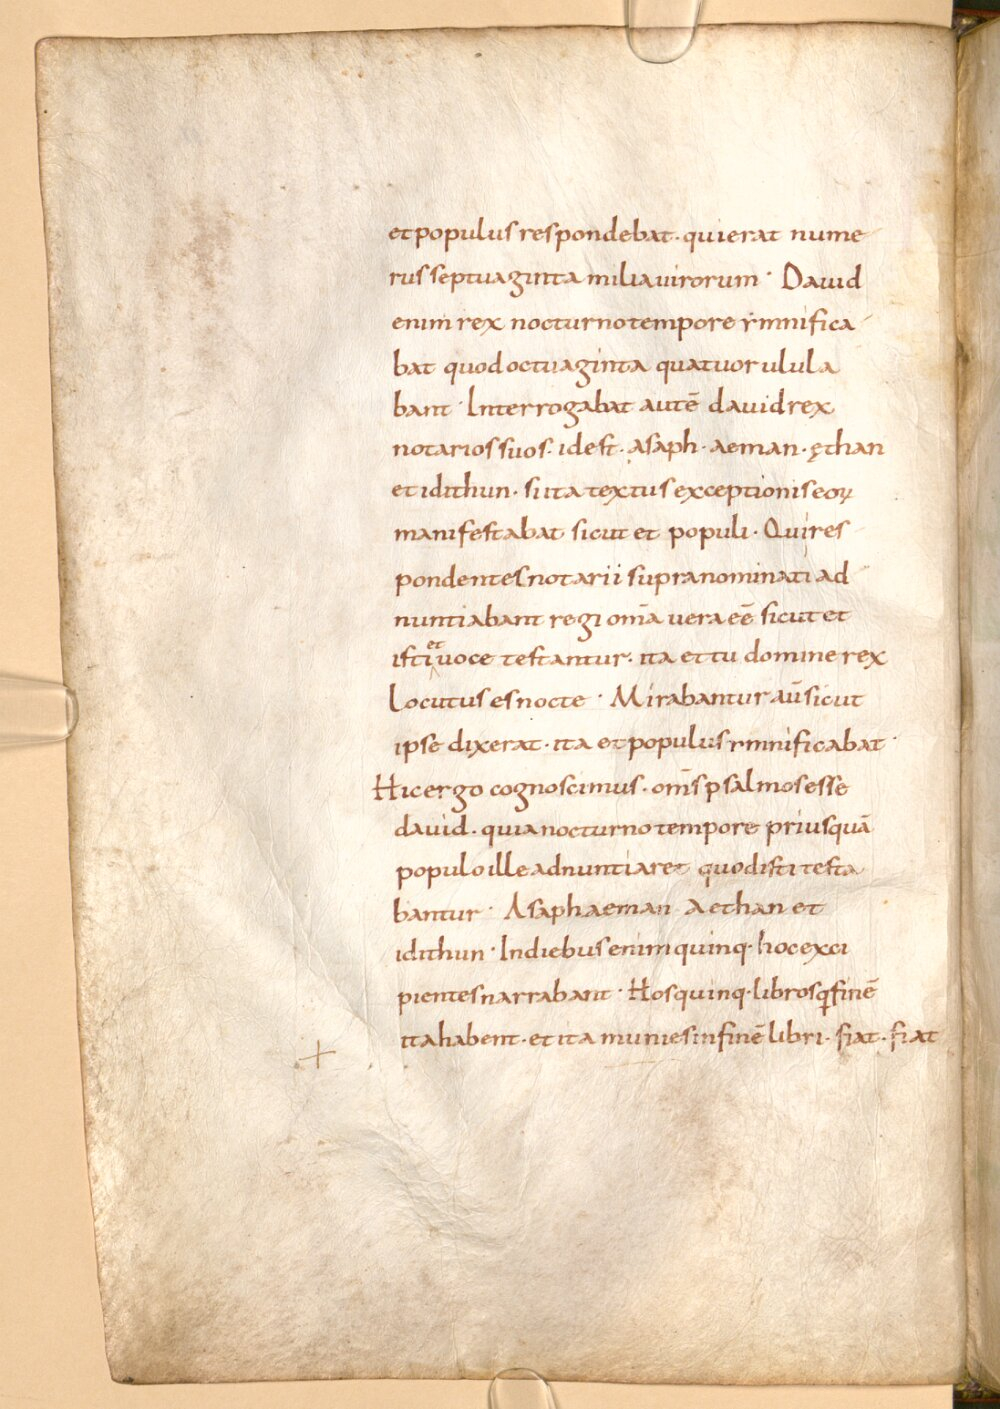 et populus respondebat · qui erat nume
rus septuaginta milia uirorum · Dauid
enim rex nocturno tempore rimnifica
bat quod octuaginta quatuor ulula
bant · Interrogabat autē dauid rex
notarios suos · id est · asaph · aeman · ęthan
et idithun · si ita textus exceptionis eoꝝ
manifestabat sicut et populi · Qui res
pondentes notarii supranominati ad
nuntiabant regi om̄a uera eē sicut et
isti et uoce testantur · ita et tu domine rex
Locutus es nocte · Mirabantur aū sicut
ipse dixerat · ita et populus rimnificabat ·
Hic ergo cognoscimus · om̄s psalmos esse
dauid · quia nocturno tempore priusquā
populo ille adnuntiaret quod isti testa
bantur · Asaph aeman Aethan et
idithun · In diebus enim quinq · hoc exci
pientes narrabant · Hos quinq · libros q finē
ita habent · et ita munies in finē libri · fiat · fiat